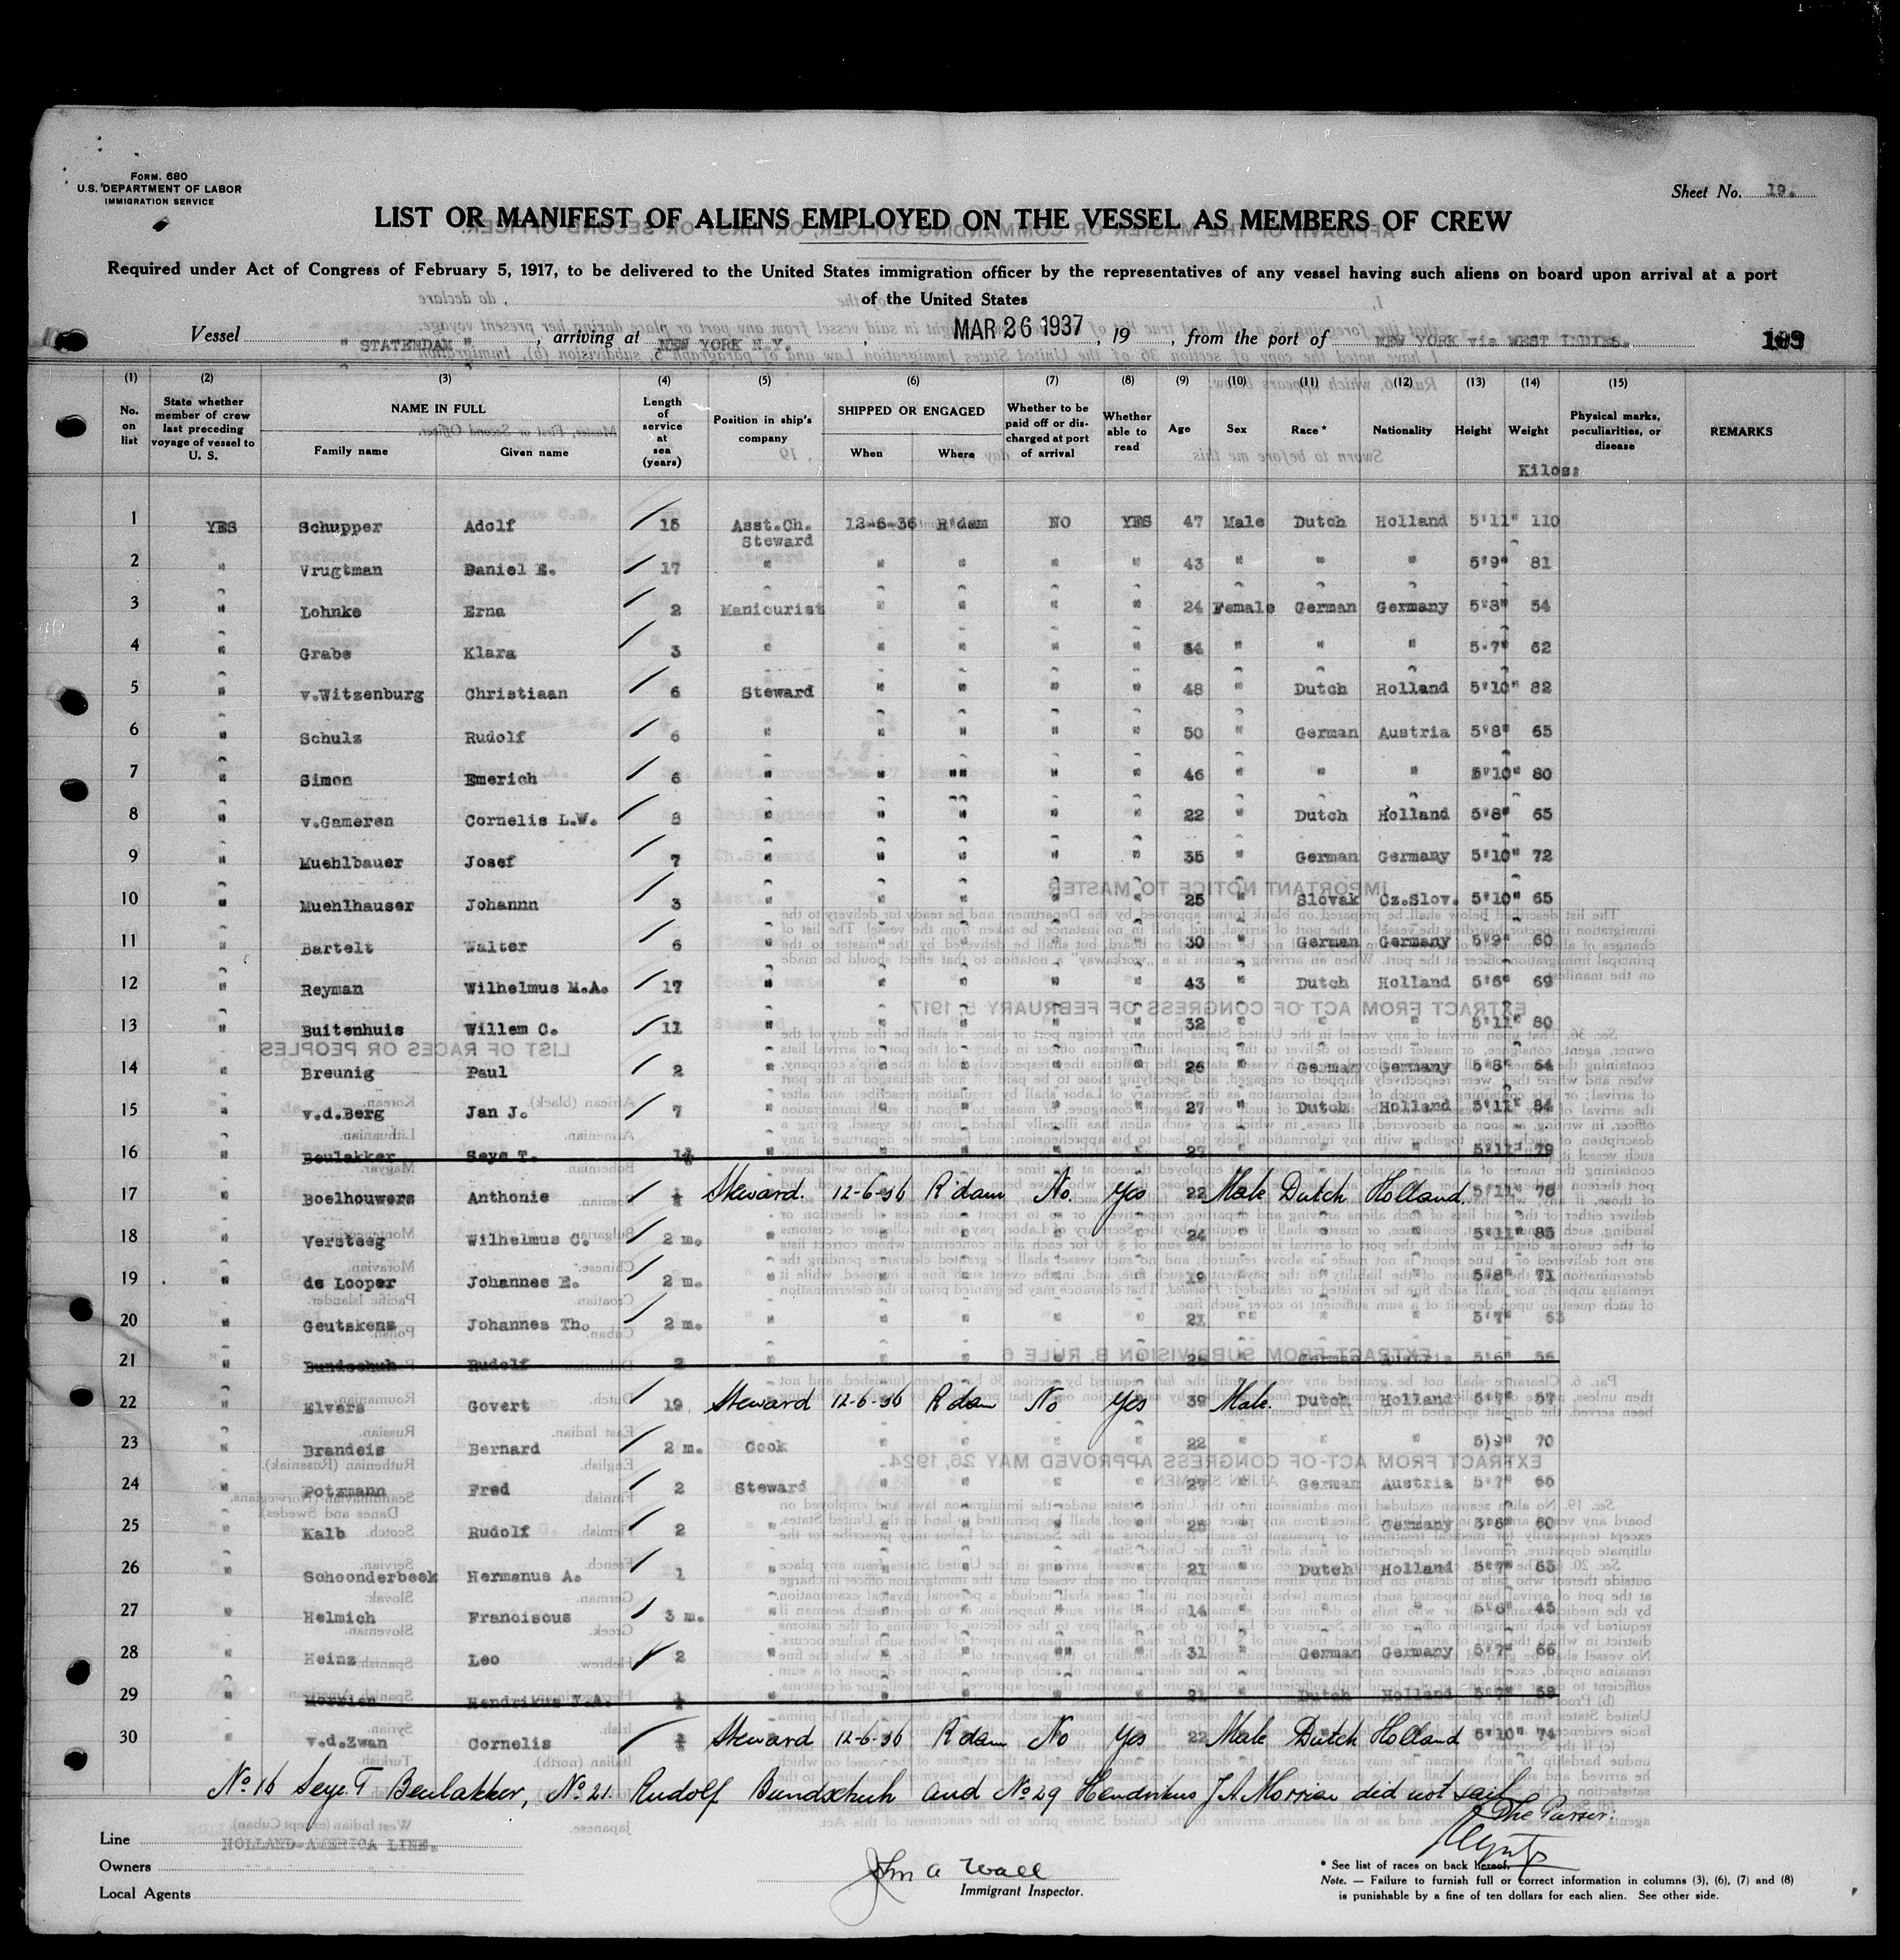 FORM. 680
U.S. DEPARTMENT OF LABOR
IMMIGRATION SERVICE
Sheet No. 19.
LIST OR MANIFEST OF ALIENS EMPLOYED ON THE VESSEL AS MEMBERS OF CREW
Required under Act of Congress of February 5, 1917, to be delivered to the United States immigration officer by the representatives of any vessel having such aliens on board upon arrival at a port
of the United States
Vessel " STATENDAM ", arriving at NEW YORK N.Y., MAR 26 1937, 19 , from the port of NEW YORK via WEST INDIES.
(1) (2) (3) (4) (5) (6) (7) (8) (9) (10) (11) (12) (13) (14) (15)
No. on list State whether member of crew last preceding voyage of vessel to U. S. NAME IN FULL Family name Given name Length of service at sea (years) Position in ship's company SHIPPED OR ENGAGED When Where Whether to be paid off or discharged at port of arrival Whether able to read Age Sex Race * Nationality Height Weight Physical marks, peculiarities, or disease REMARKS
Kilos:
1 YES Schupper Adolf 15 Asst.Ch. Steward 12-6-36 R'dam NO YES 47 Male Dutch Holland 5'11" 110
2 " Vrugtman Daniel E. 17 " " " " " 43 " " " 5'9" 81
3 " Lohnke Erna 2 Manicurist " " " " 24 Female German Germany 5'8" 54
4 " Grabe Klara 3 " " " " " 34 " " " 5'7" 62
5 " v.Witzenburg Christiaan 6 Steward " " " " 48 " Dutch Holland 5'10" 82
6 " Schulz Rudolf 6 " " " " " 50 " German Austria 5'8" 65
7 " Simon Emerich 6 " " "" " " 46 " " " 5'10" 80
8 " v.Gameren Cornelis L.W. 8 " " " " " 22 " Dutch Holland 5'8" 65
9 " Muehlbauer Josef 7 " " " " " 35 " German Germany 5'10" 72
10 " Muehlhauser Johannn 3 " " " " " 25 " Slovak Cz.Slov. 5'10" 65
11 " Bartelt Walter 6 " " " " " 30 " German Germany 5'9" 60
12 " Reyman Wilhelmus M.A. 17 " " " " " 43 " Dutch Holland 5'6" 69
13 " Buitenhuis Willem C. 11 " " " " " 32 " " " 5'11" 80
14 " Breunig Paul 2 " " " " " 26 " German Germany 5'8" 64
15 " v.d.Berg Jan J. 7 " " " " " 27 " Dutch Holland 5'11" 84
16 " Beulakker Seye T. " " " " " 27 " " " 5'11" 79
17 " Boelhouwers Anthonie Steward. 12-6-36 R'dam No. Yes 22 Male Dutch Holland. 5'11" 78
18 " Versteeg Wilhelmus C. 2 m. " " " " " 24 " " " 5'11" 85
19 " de Looper Johannes E. 2 m. " " " " " 19 " " " 5'8" 71
20 " Geutskens Johannes Th. 2 m. " " " " " 21 "" " " 5'7" 63
21 " Bundschuh Rudolf 2 " " " " " 25 " German Austria 5'6" 56
22 " Elvers Govert 19 Steward 12-6-36 R'dam No Yes 39 Male. Dutch Holland 5'7" 57
23 " Brandeis Bernard 2 m. Cook " " " " 22 " " " 5)9" 70
24 " Potzmann Fred 2 Steward " " " " 27 " German Austria 5'7" 65
25 " Kalb Rudolf 2 " " " " " 25 " " Germany 5'6" 60
26 " Schoonderbeek Hermanus A. 1 " " " " " 21 " Dutch Holland 5'7" 63
27 " Helmich Franciscus 3 m. " " " " " 14 " " " 5'6" 45
28 " Heinz Leo 2 " " " "" " 31 " German Germany 5'7" 66
29 " Morrien Hendrikus J.A. " " " " " 21 " Dutch Holland 5'7" 58
30 " v.d.Zwan Cornelis Steward 12-6-36 R'dam No Yes 22 Male Dutch Holland 5'10" 74
No 16 Seye T Beulakker, No 21 Rudolf Bundschuh and No 29 Hendrikus J A Morrien did not sail
The Purser:
Line HOLLAND-AMERICA LINE.
Owners
Local Agents
John A Wall
Immigrant Inspector.
* See list of races on back hereof.
Note. — Failure to furnish full or correct information in columns (3), (6), (7) and (8)
is punishable by a fine of ten dollars for each alien. See other side.